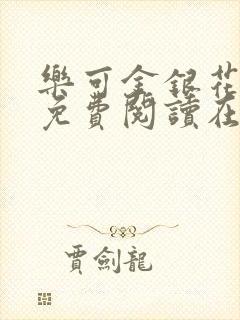 樂可金銀花
免費閱讀在
賈劍龍